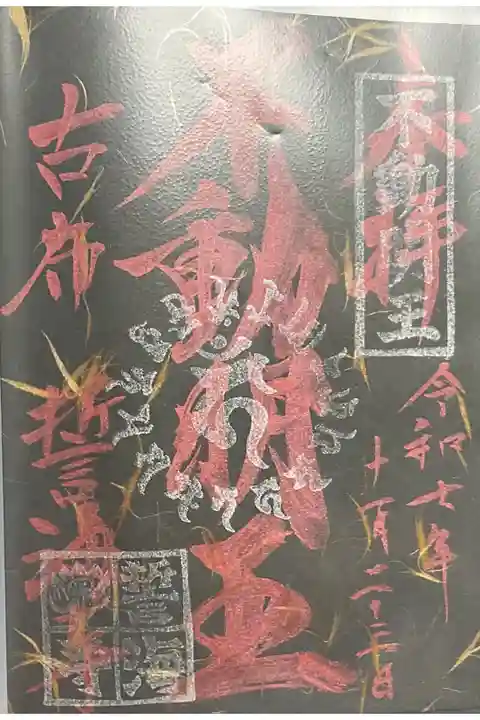 奉拝
不動明王
令和七年
十一月二十三日
不動明王
古都
誓海寺
誓海寺